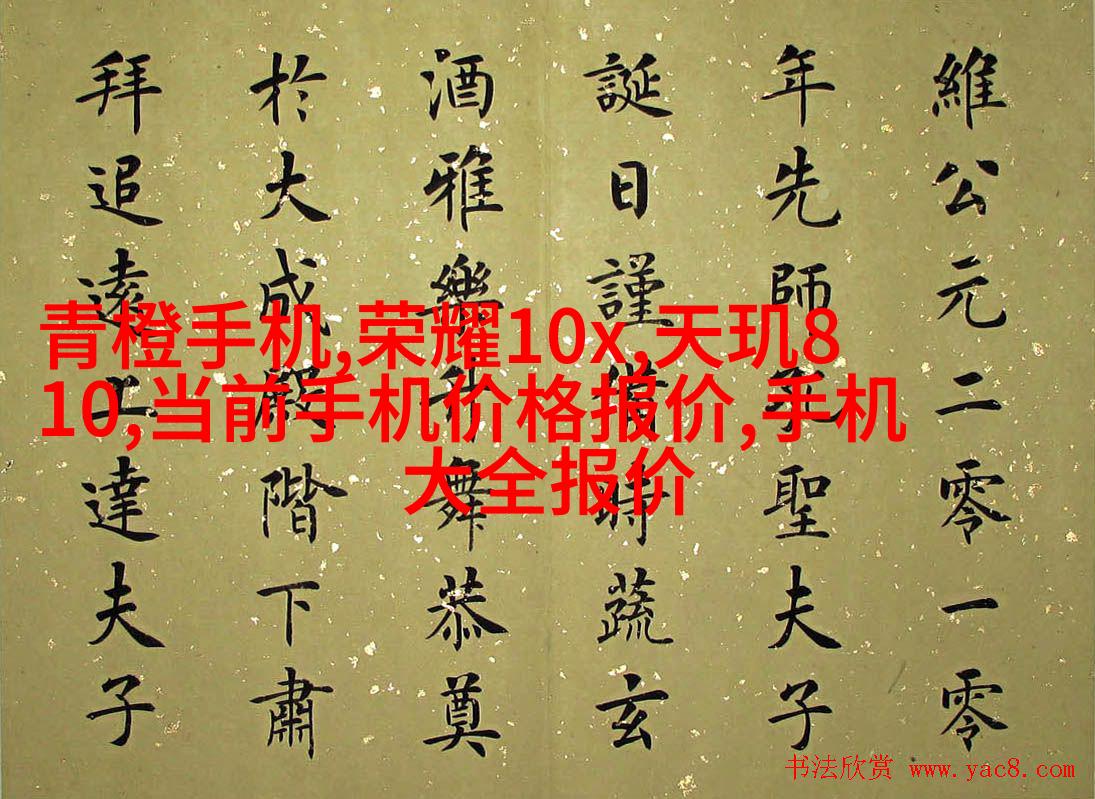 維公元二零一零
年先師孔聖夫子
誕日謹備時蔬玄
酒雅樂舞恭奠
於大成殿階下肅
拜追遠上達夫子
青橙手机,荣耀10x,天玑8
10,当前手机价格报价,手机
大全报价
书法欣赏 www.yac8.com